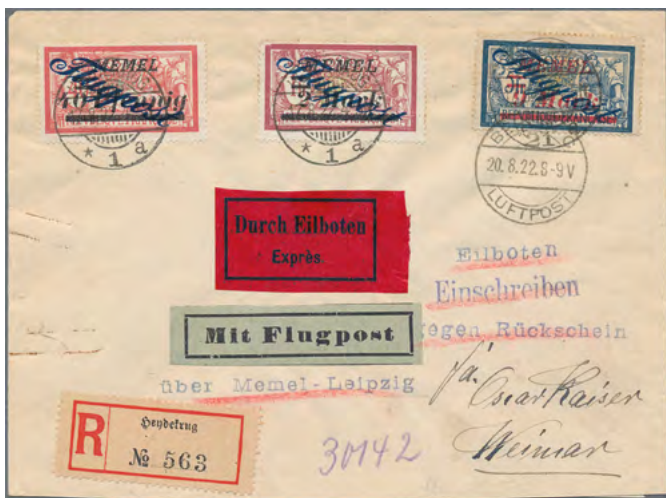 MEMEL
Flugpost
MEMEL
Flugpost
MEMEL
Flugpost
* 1 a
* 1 a
20.8.22.8-9V
LUFTPOST
Durch Eilboten
Exprès
Eilboten
Einschreiben
gegen Rückschein
Mit Flugpost
über Memel-Leipzig
Fa.
Oscar Kaiser
Weimar
R
Heydekrug
№ 563
30142